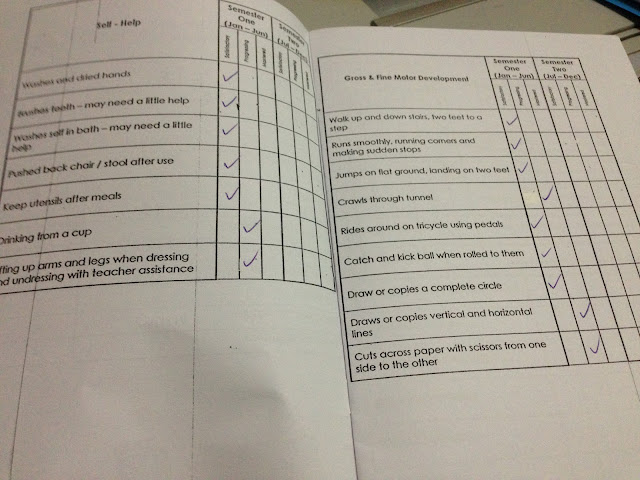 Self - Help
Semester
One
(Jan – Jun)
Semester
Two
(Jul – Dec)
Satisfactory
Progressing
Washes and dried hands
Washes teeth – may need a little help
Washes self in bath – may need a little
help
Pushed back chair / stool after use
Keep utensils after meals
Drinking from a cup
fting up arms and legs when dressing
nd undressing with teacher assistance
Gross & Fine Motor Development
Semester
One
(Jan – Jun)
Semester
Two
(Jul – Dec)
Satisfactory
Progressing
Satisfactory
Progressing
Walk up and down stairs, two feet to a
step
Runs smoothly, running corners and
making sudden stops
Jumps on flat ground, landing on two feet
Crawls through tunnel
Rides around on tricycle using pedals
Catch and kick ball when rolled to them
Draw or copies a complete circle
Draws or copies vertical and horizontal
lines
Cuts across paper with scissors from one
side to the other